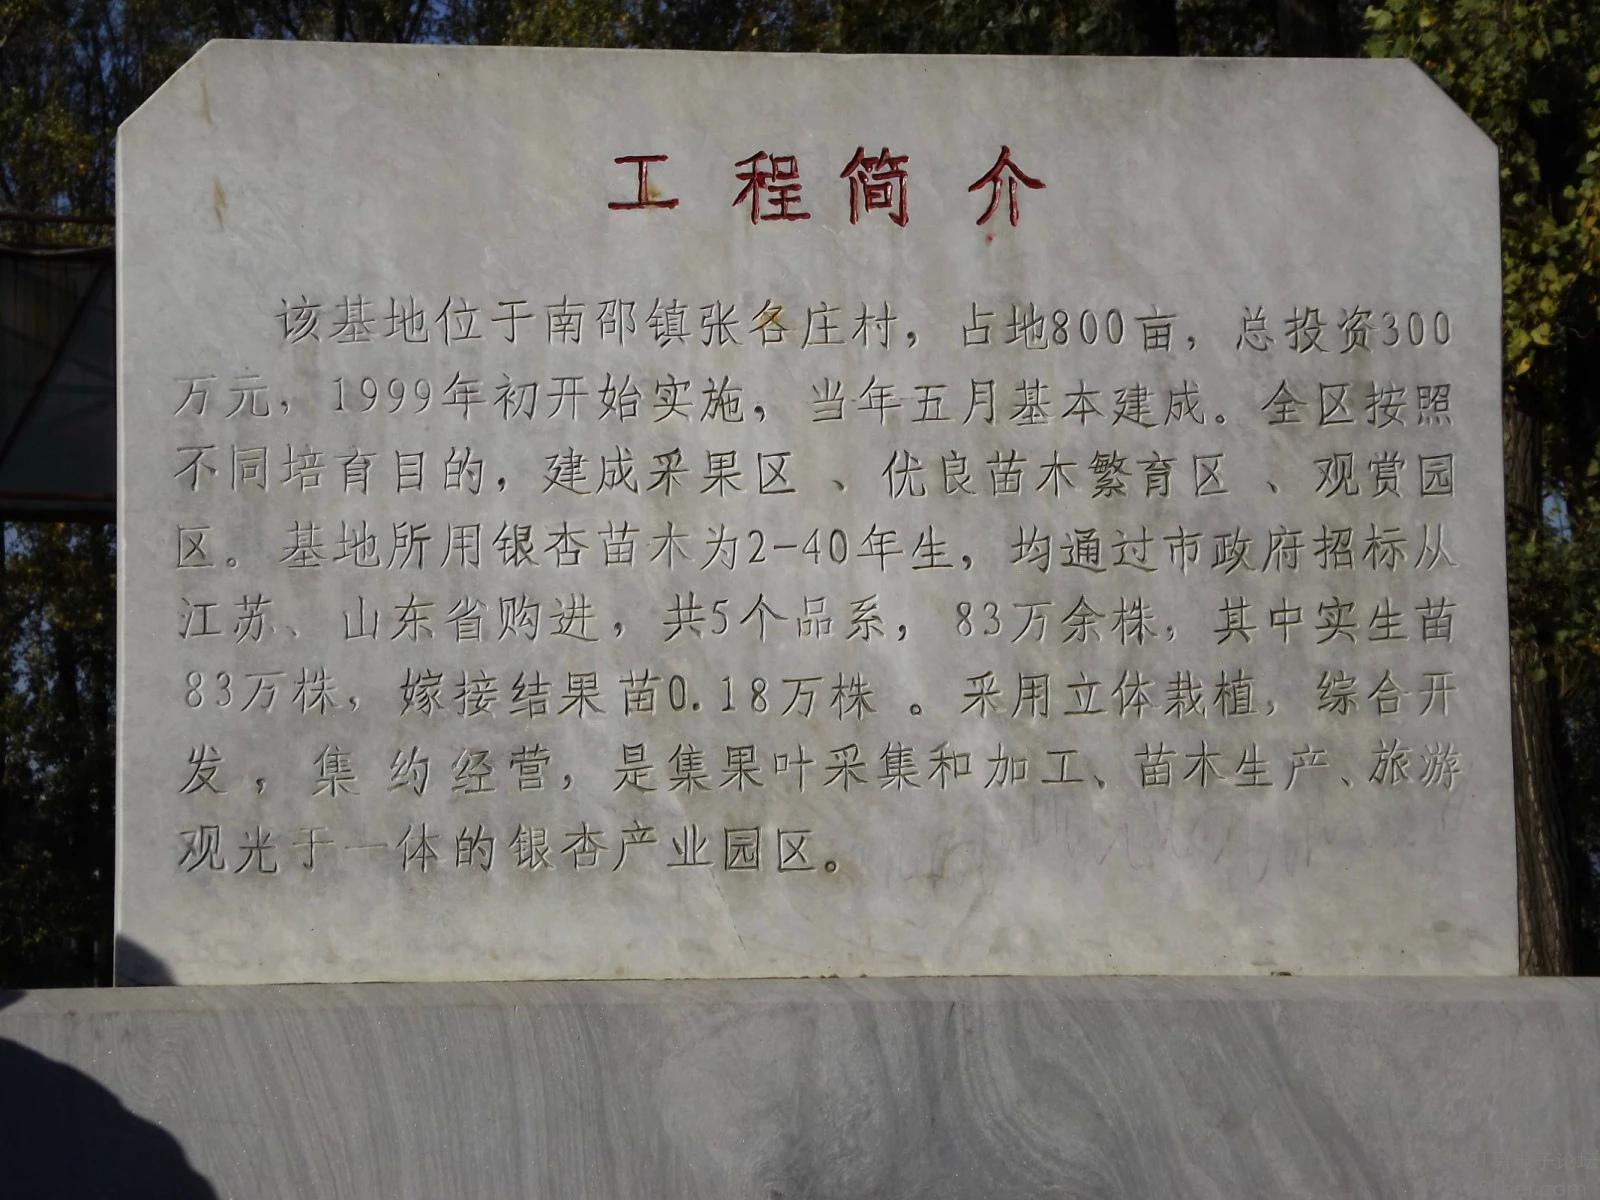 工程简介
该基地位于南邵镇张各庄村，占地800亩，总投资300
万元，1999年初开始实施，当年五月基本建成。全区按照
不同培育目的，建成采果区、优良苗木繁育区、观赏园
区。基地所用银杏苗木为2-40年生，均通过市政府招标从
江苏、山东省购进，共5个品系，83万余株，其中实生苗
83万株，嫁接结果苗0.18万株。采用立体栽植，综合开
发，集约经营，是集果叶采集和加工、苗木生产、旅游
观光于一体的银杏产业园区。